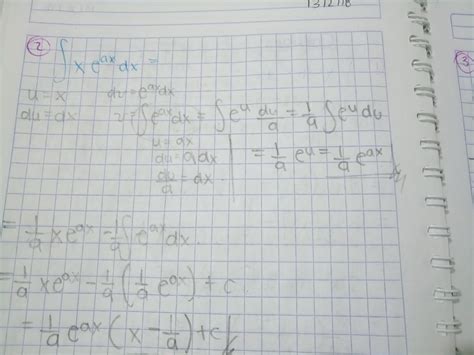 131218
② ∫ x e^{ax} dx =
③
u = x dv = e^{ax} dx
du = dx v = ∫ e^{ax} dx = ∫ e^u du/a = 1/a ∫ e^u du
u = ax
du = a dx
du/a = dx
= 1/a e^u = 1/a e^{ax}
= 1/a x e^{ax} - 1/a ∫ e^{ax} dx
= 1/a x e^{ax} - 1/a (1/a e^{ax}) + c
= 1/a e^{ax} (x - 1/a) + c